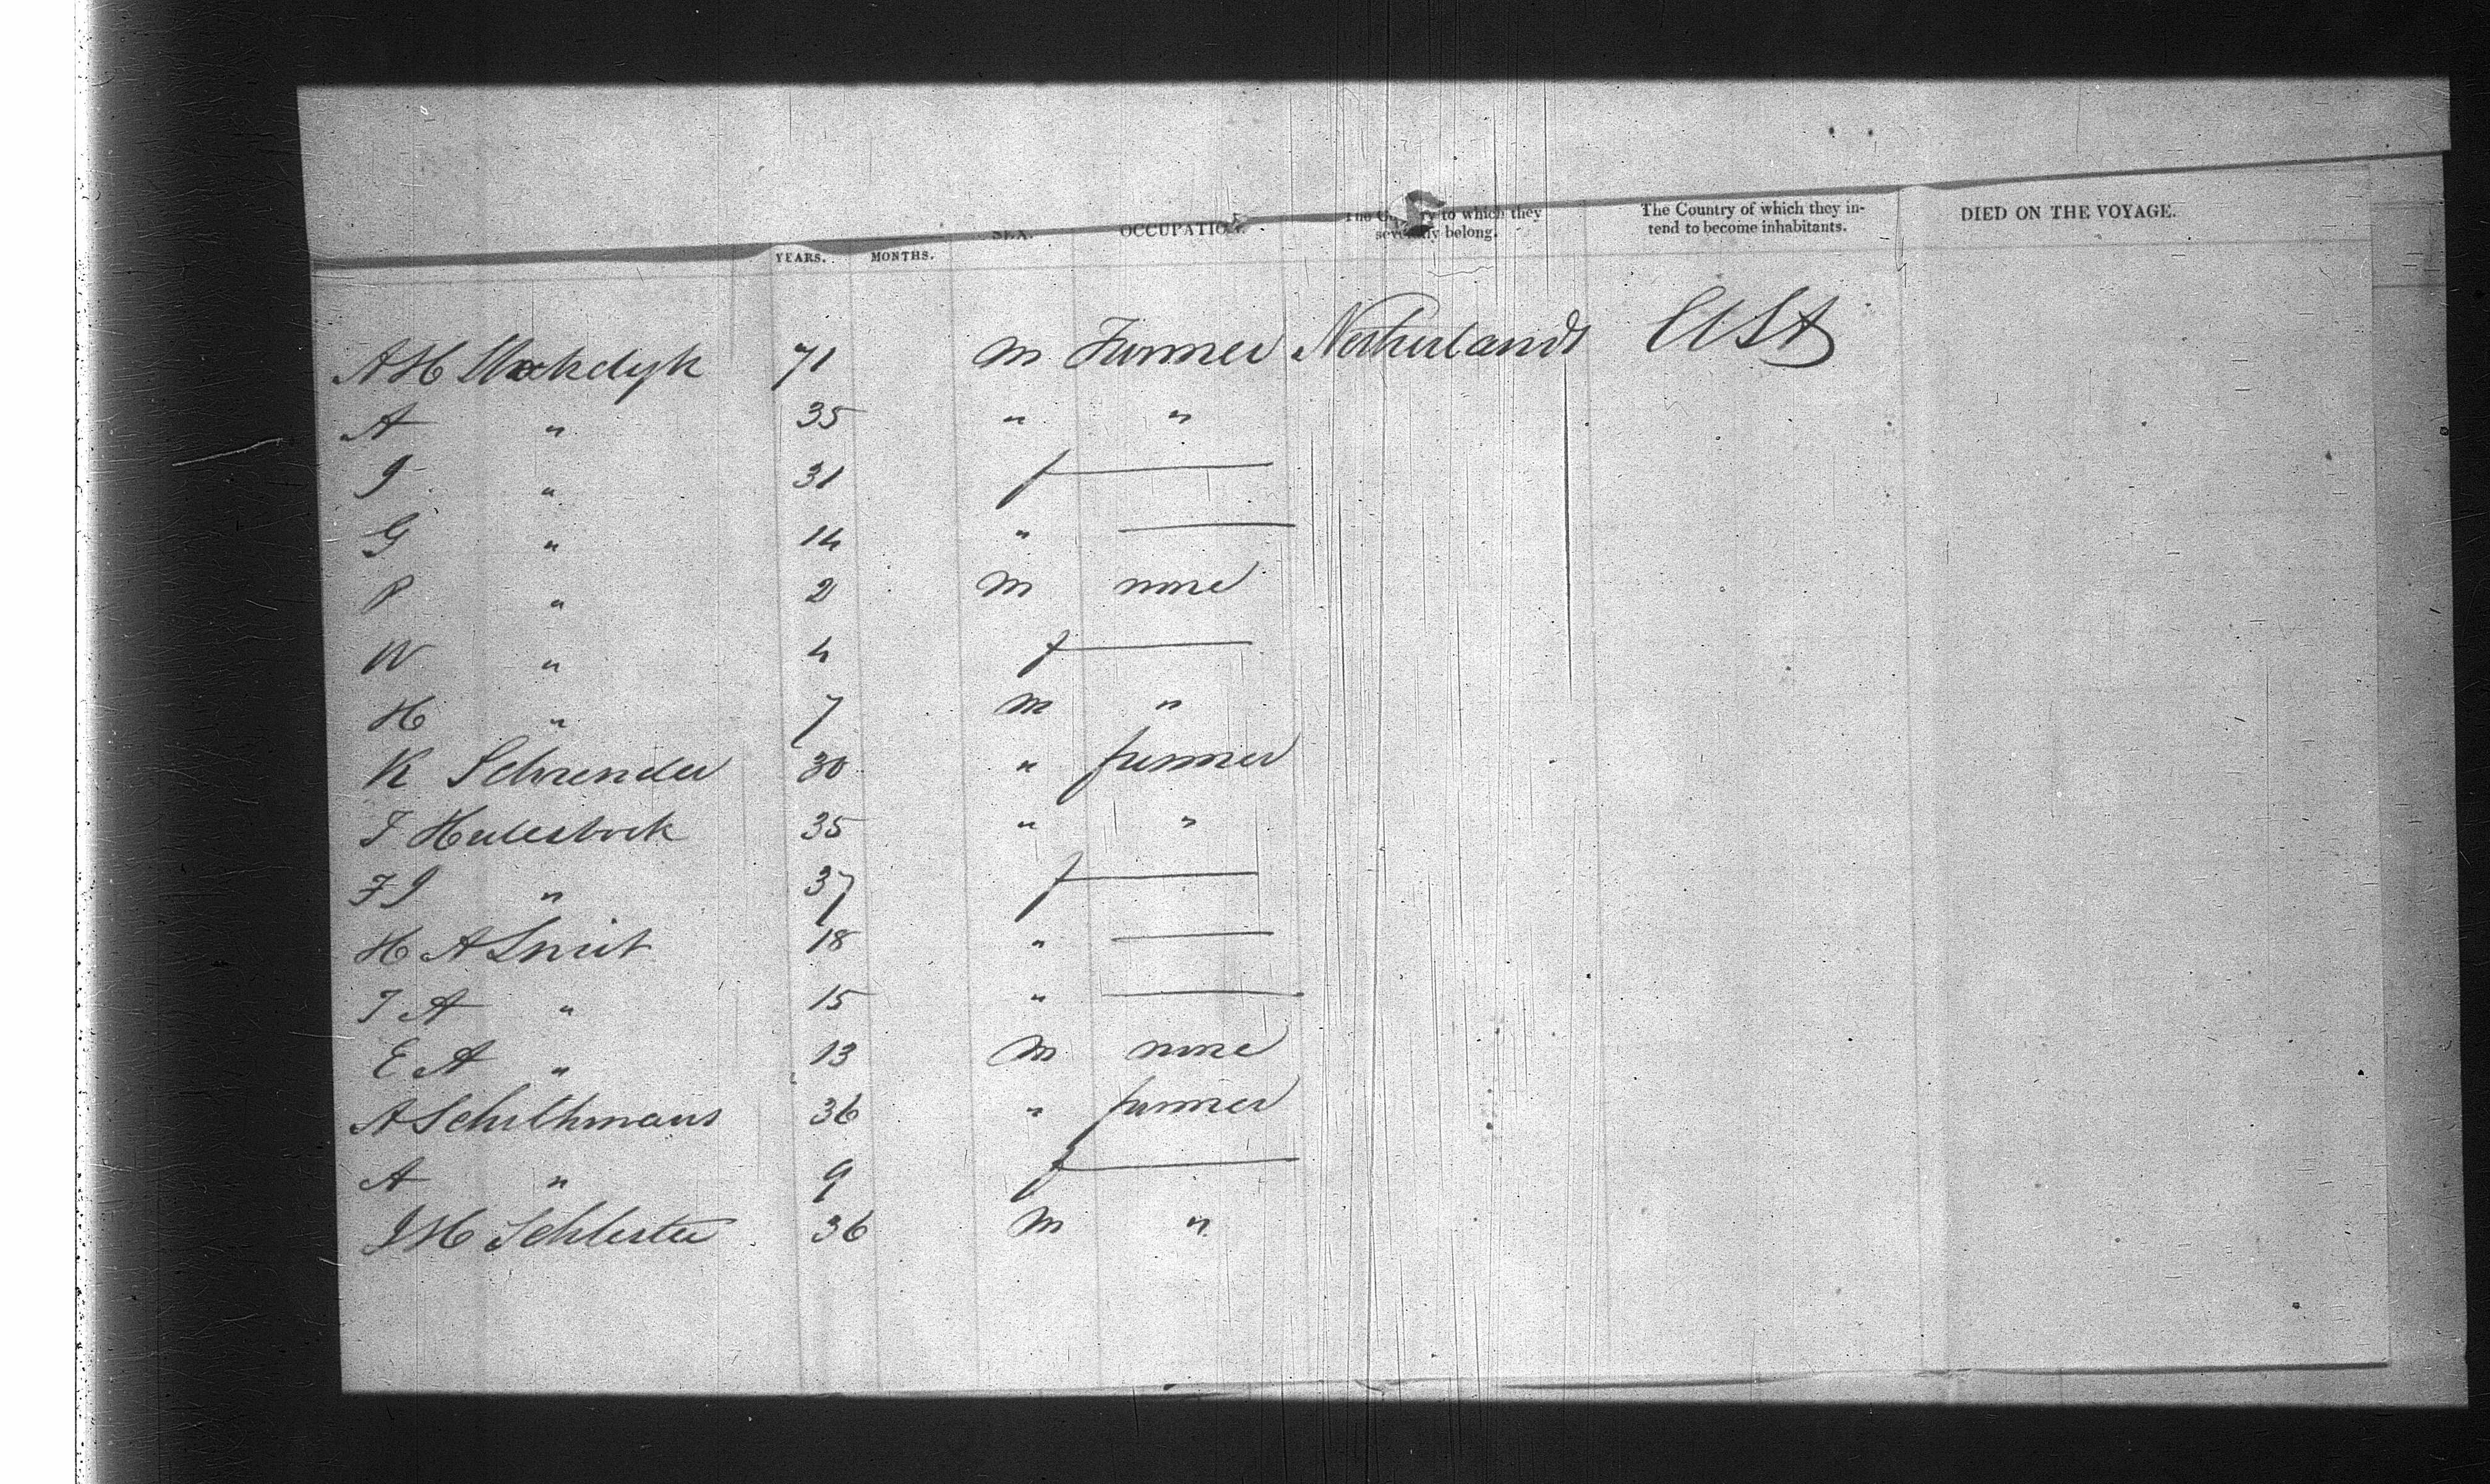 SEX. OCCUPATION. The Country to which they severally belong. The Country of which they intend to become inhabitants. DIED ON THE VOYAGE.
YEARS. MONTHS.
A H 71 m Farmer Netherlands USA
A " 35 " "
J " 31 f
G " 14 "
P " 2 m none
W " 4 f
H " 7 m "
K Schreuder 30 " farmer
T 35 " "
F J " 37 f
H A Smit 18 "
T A " 15 "
E A " 13 m none
A Schilthmans 36 " farmer
A " 9 f
J H 36 m "